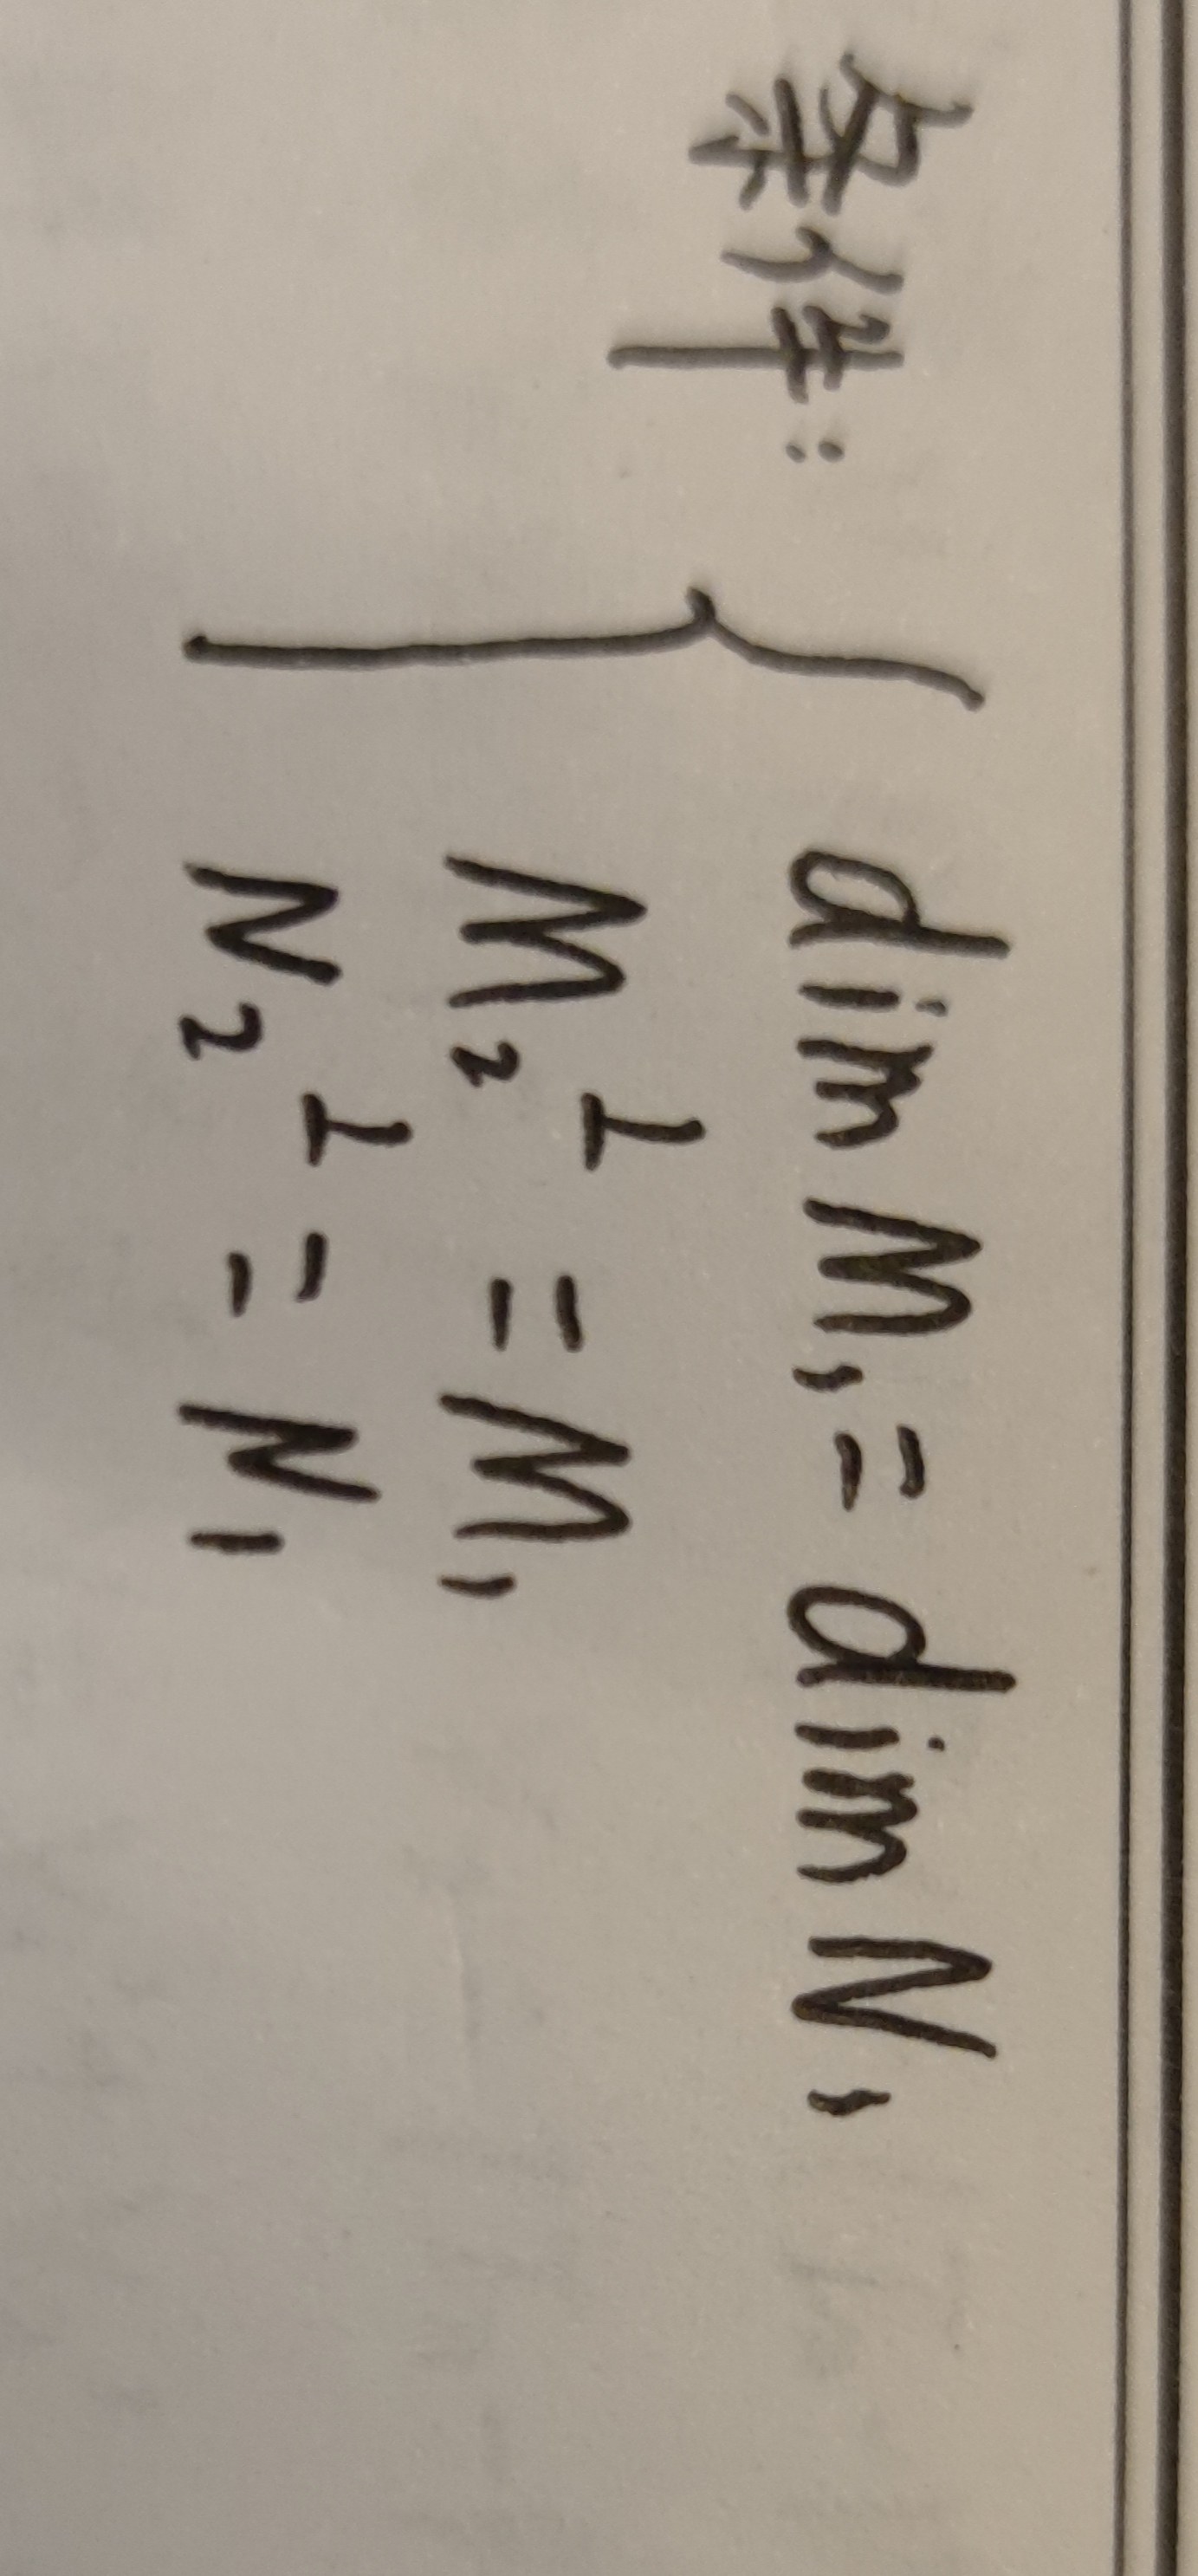 条件: { dim M₁ = dim N₁
M₂^⊥ = M₁
N₂^⊥ = N₁